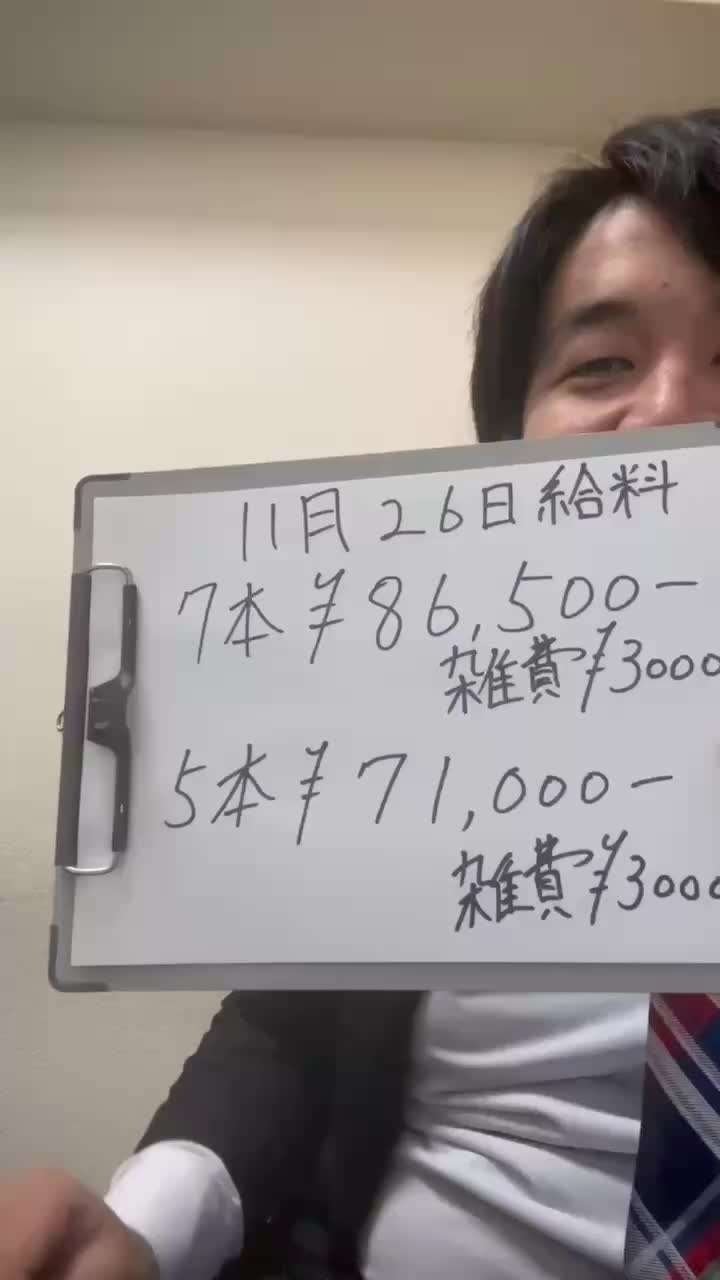 11月26日給料
7本¥86,500-
雑費¥3000
5本¥71,000-
雑費¥3000